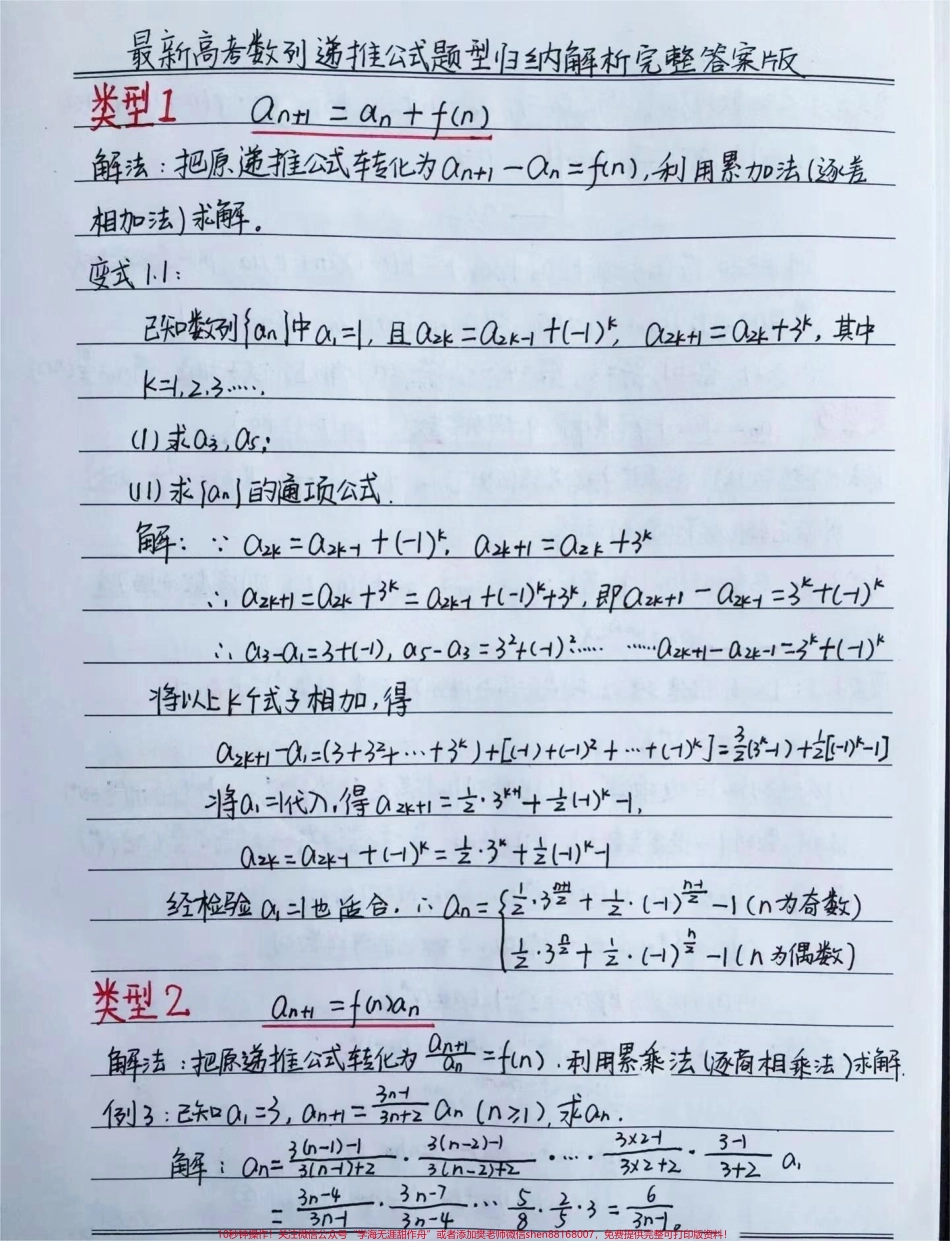 最新高考数列递推公式题型归纳解析完整答案版
类型1 aₙ₊₁ = aₙ + f(n)
解法：把原递推公式转化为aₙ₊₁ - aₙ = f(n)，利用累加法(逐差
相加法)求解。
变式1.1：
已知数列{aₙ}中a₁=1，且a₂ₖ = a₂ₖ₋₁ + (-1)ᵏ，a₂ₖ₊₁ = a₂ₖ + 3ᵏ，其中
k=1,2,3……
(I) 求a₃, a₅;
(II) 求{aₙ}的通项公式.
解：∵ a₂ₖ = a₂ₖ₋₁ + (-1)ᵏ，a₂ₖ₊₁ = a₂ₖ + 3ᵏ
∴ a₂ₖ₊₁ = a₂ₖ + 3ᵏ = a₂ₖ₋₁ + (-1)ᵏ + 3ᵏ，即a₂ₖ₊₁ - a₂ₖ₋₁ = 3ᵏ + (-1)ᵏ
∴ a₃ - a₁ = 3 + (-1)，a₅ - a₃ = 3² + (-1)²…… ……a₂ₖ₊₁ - a₂ₖ₋₁ = 3ᵏ + (-1)ᵏ
将以上k个式子相加，得
a₂ₖ₊₁ - a₁ = (3 + 3² + … + 3ᵏ) + [(-1) + (-1)² + … + (-1)ᵏ] = 3/2(3ᵏ-1) + 1/2[(-1)ᵏ-1]
将a₁=1代入，得a₂ₖ₊₁ = 1/2·3ᵏ⁺¹ + 1/2(-1)ᵏ - 1，
a₂ₖ = a₂ₖ₋₁ + (-1)ᵏ = 1/2·3ᵏ + 1/2(-1)ᵏ - 1
经检验a₁=1也适合. ∴ aₙ = { 1/2·3^((n+1)/2) + 1/2·(-1)^((n-1)/2) - 1 (n为奇数)
1/2·3^(n/2) + 1/2·(-1)^(n/2) - 1 (n为偶数)
类型2 aₙ₊₁ = f(n)aₙ
解法：把原递推公式转化为 aₙ₊₁/aₙ = f(n). 利用累乘法(逐商相乘法)求解.
例3：已知a₁=3, aₙ₊₁ = (3n-1)/(3n+2) aₙ (n≥1)，求aₙ.
解：aₙ = (3(n-1)-1)/(3(n-1)+2) · (3(n-2)-1)/(3(n-2)+2) · … · (3×2-1)/(3×2+2) · (3-1)/(3+2) a₁
= (3n-4)/(3n-1) · (3n-7)/(3n-4) … 5/8 · 2/5 · 3 = 6/(3n-1)。
10秒钟操作！关注微信公众号“学海无涯甜作舟”或者添加吴老师微信shen88168007，免费提供完整可打印版资料！